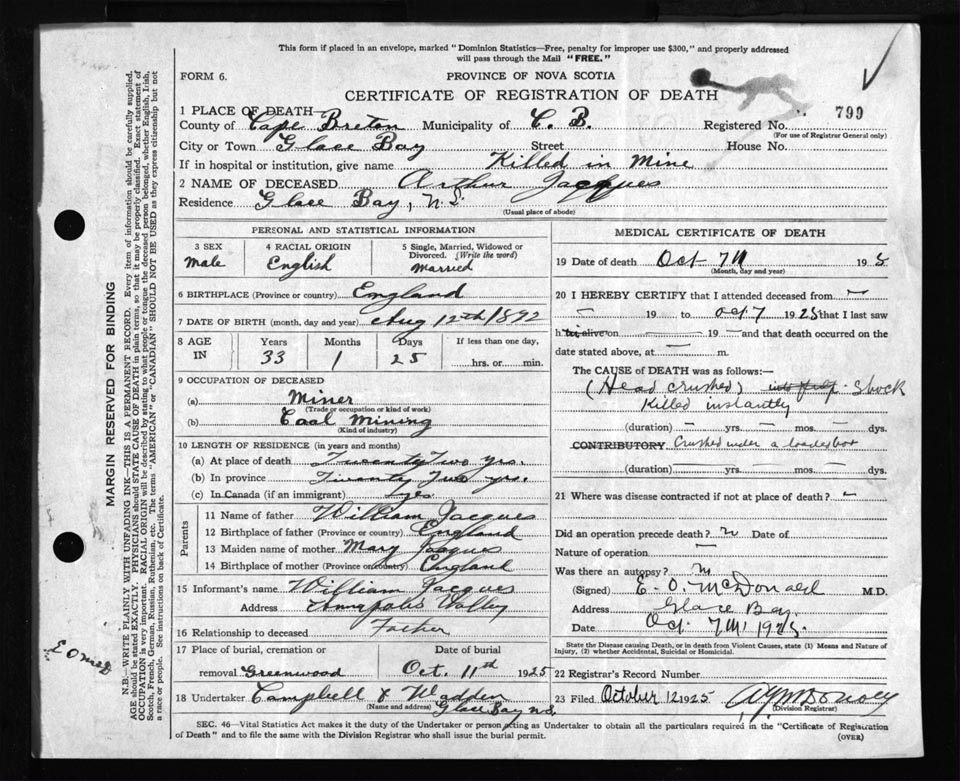 This form if placed in an envelope, marked "Dominion Statistics—Free, penalty for improper use $300," and properly addressed
will pass through the Mail "FREE."
FORM 6.
PROVINCE OF NOVA SCOTIA
CERTIFICATE OF REGISTRATION OF DEATH
799
1 PLACE OF DEATH—
County of Cape Breton Municipality of C. B. Registered No.
(For use of Registrar General only)
City or Town Glace Bay Street House No.
If in hospital or institution, give name Killed in Mine
2 NAME OF DECEASED Arthur Jacques
Residence Glace Bay, N.S.
(Usual place of abode)
PERSONAL AND STATISTICAL INFORMATION
3 SEX 4 RACIAL ORIGIN 5 Single, Married, Widowed or Divorced. (Write the word)
Male English Married
6 BIRTHPLACE (Province or country) England
7 DATE OF BIRTH (month, day and year) Aug 12th 1892
8 AGE IN Years Months Days If less than one day,
33 1 25 hrs. or min.
9 OCCUPATION OF DECEASED
(a) Miner
(Trade or occupation or kind of work)
(b) Coal Mining
(Kind of industry)
10 LENGTH OF RESIDENCE (in years and months)
(a) At place of death Twenty Two yrs.
(b) In province Twenty Two yrs.
(c) In Canada (if an immigrant) yes
Parents
11 Name of father William Jacques
12 Birthplace of father (Province or country) England
13 Maiden name of mother Mary Jacques
14 Birthplace of mother (Province or country) England
15 Informant's name William Jacques
Address Annapolis Valley
16 Relationship to deceased Father
17 Place of burial, cremation or Date of burial
removal Greenwood Oct. 11th 1925
18 Undertaker Campbell & Madden
(Name and address) Glace Bay N.S.
MEDICAL CERTIFICATE OF DEATH
19 Date of death Oct 7th 19
(Month, day and year)
20 I HEREBY CERTIFY that I attended deceased from —
— 19 to Oct 7 1925 that I last saw
h alive on 19 — and that death occurred on the
date stated above, at — m.
The CAUSE of DEATH was as follows:—
(Head crushed) Shock
Killed instantly
(duration) — yrs. — mos. — dys.
CONTRIBUTORY Crushed under a
(duration) yrs. mos. dys.
21 Where was disease contracted if not at place of death? —
Did an operation precede death? Date of
Nature of operation —
Was there an autopsy?
(Signed) E. O. McDonald M.D.
Address Glace Bay
Date Oct. 7th 1925
State the Disease causing Death, or in death from Violent Causes, state (1) Means and Nature of
Injury, (2) whether Accidental, Suicidal or Homicidal.
22 Registrar's Record Number
23 Filed October 12 1925
(Division Registrar)
SEC. 46—Vital Statistics Act makes it the duty of the Undertaker or person acting as Undertaker to obtain all the particulars required in the "Certificate of Registration
of Death" and to file the same with the Division Registrar who shall issue the burial permit.
(OVER)
MARGIN RESERVED FOR BINDING
N.B.—WRITE PLAINLY WITH UNFADING INK—THIS IS A PERMANENT RECORD. Every item of information should be carefully supplied.
AGE should be stated EXACTLY. PHYSICIANS should STATE CAUSE OF DEATH in plain terms, so that it may be properly classified. Exact statement of
OCCUPATION is very important. RACIAL ORIGIN will be described by stating to what people or tongue the deceased person belonged, whether English, Irish,
Scotch, French, German, Russian, Ruthenian, etc. The terms "AMERICAN" or "CANADIAN" SHOULD NOT BE USED as they express citizenship but not
a race or people. See instructions on back of Certificate.